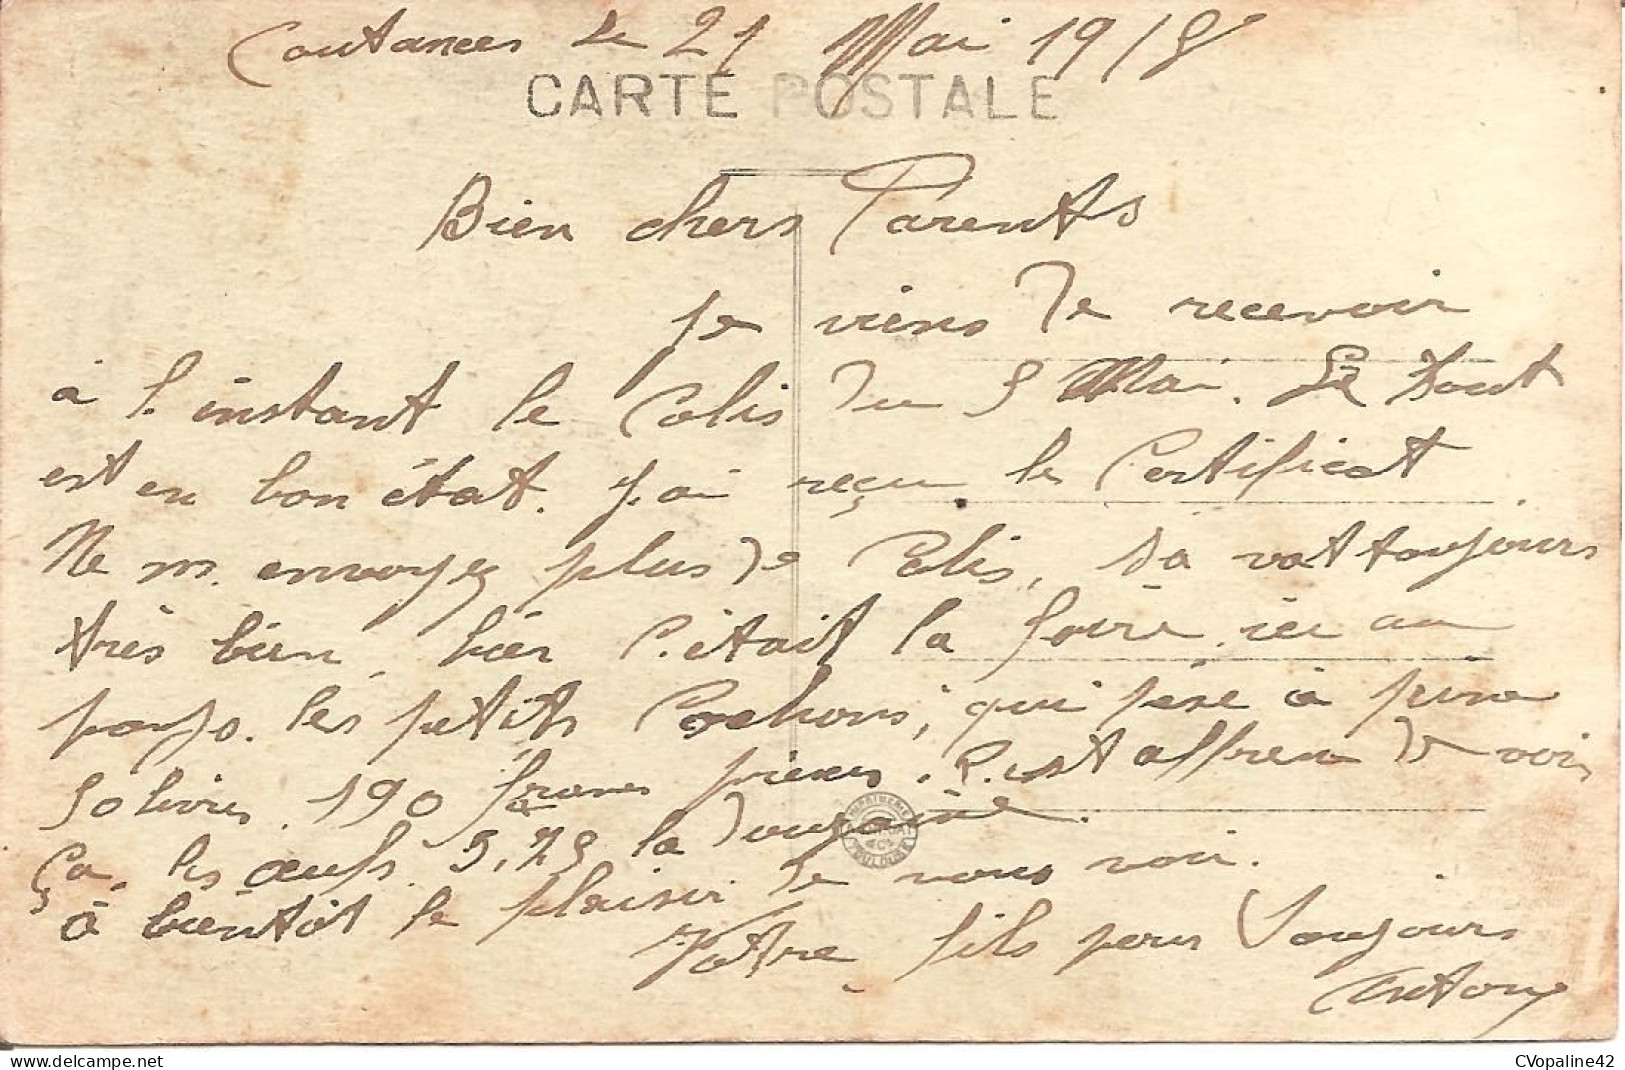 Coutances le 21 Mai 1918
CARTE POSTALE
Bien chers Parents
je viens de recevoir
à l'instant le Colis du 5 Mai. Le tout
est en bon état. J'ai reçu le Certificat
Ne m'envoyez plus de Colis, sa vat toujours
très bien, hier c'était la foire, ici au
pays. les petits Cochons, qui pèse à peine
30 livres, 190 francs pièces. C'est affreux de voir
ça, les œufs 3,25 la Douzaine.
à bientôt le plaisir de vous voir.
Votre fils pour Toujours
Antony
CVopaline42